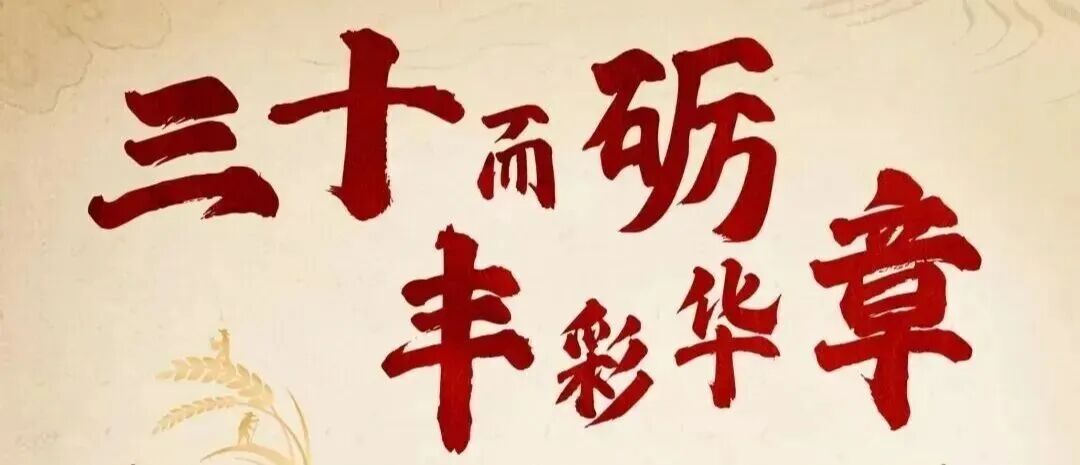 三十而砺
丰彩华章